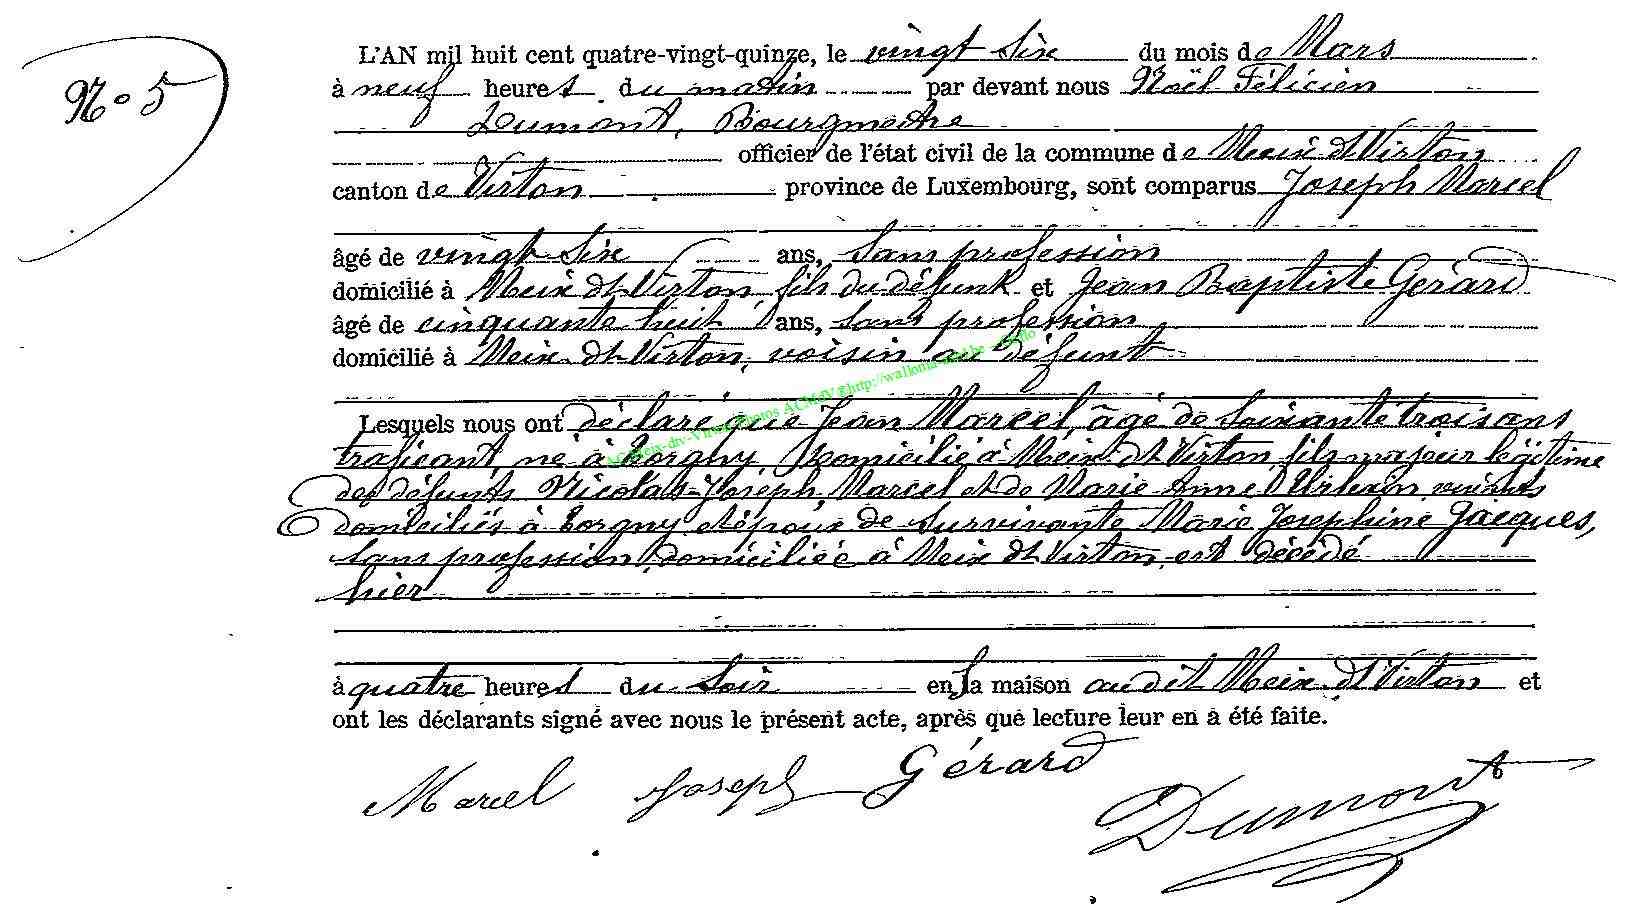 No 5
L'AN mil huit cent quatre-vingt-quinze, le vingt six du mois de Mars
à neuf heures du matin par devant nous Noël Félicien
Dumont, Bourgmestre
officier de l'état civil de la commune de Meix dt Virton
canton de Virton province de Luxembourg, sont comparus Joseph Marcel
âgé de vingt six ans, sans profession
domicilié à Meix dt Virton, fils du défunt et Jean Baptiste Gérard
âgé de cinquante huit ans, sans profession
domicilié à Meix dt Virton, voisin au défunt
Lesquels nous ont déclaré que Jean Marcel, âgé de soixante trois ans
traficant, né à Torgny, Domicilié à Meix dt Virton, fils majeur légitime
des défunts Nicolas-Joseph Marcel et de Marie Anne
domiciliés à Torgny et époux de survivante Marie Josephine Jacques,
sans profession, domiciliée à Meix dt Virton, est décédé
hier
à quatre heures du soir en sa maison audit Meix dt Virton et
ont les déclarants signé avec nous le présent acte, après que lecture leur en a été faite.
Marcel Joseph Gérard
Dumont